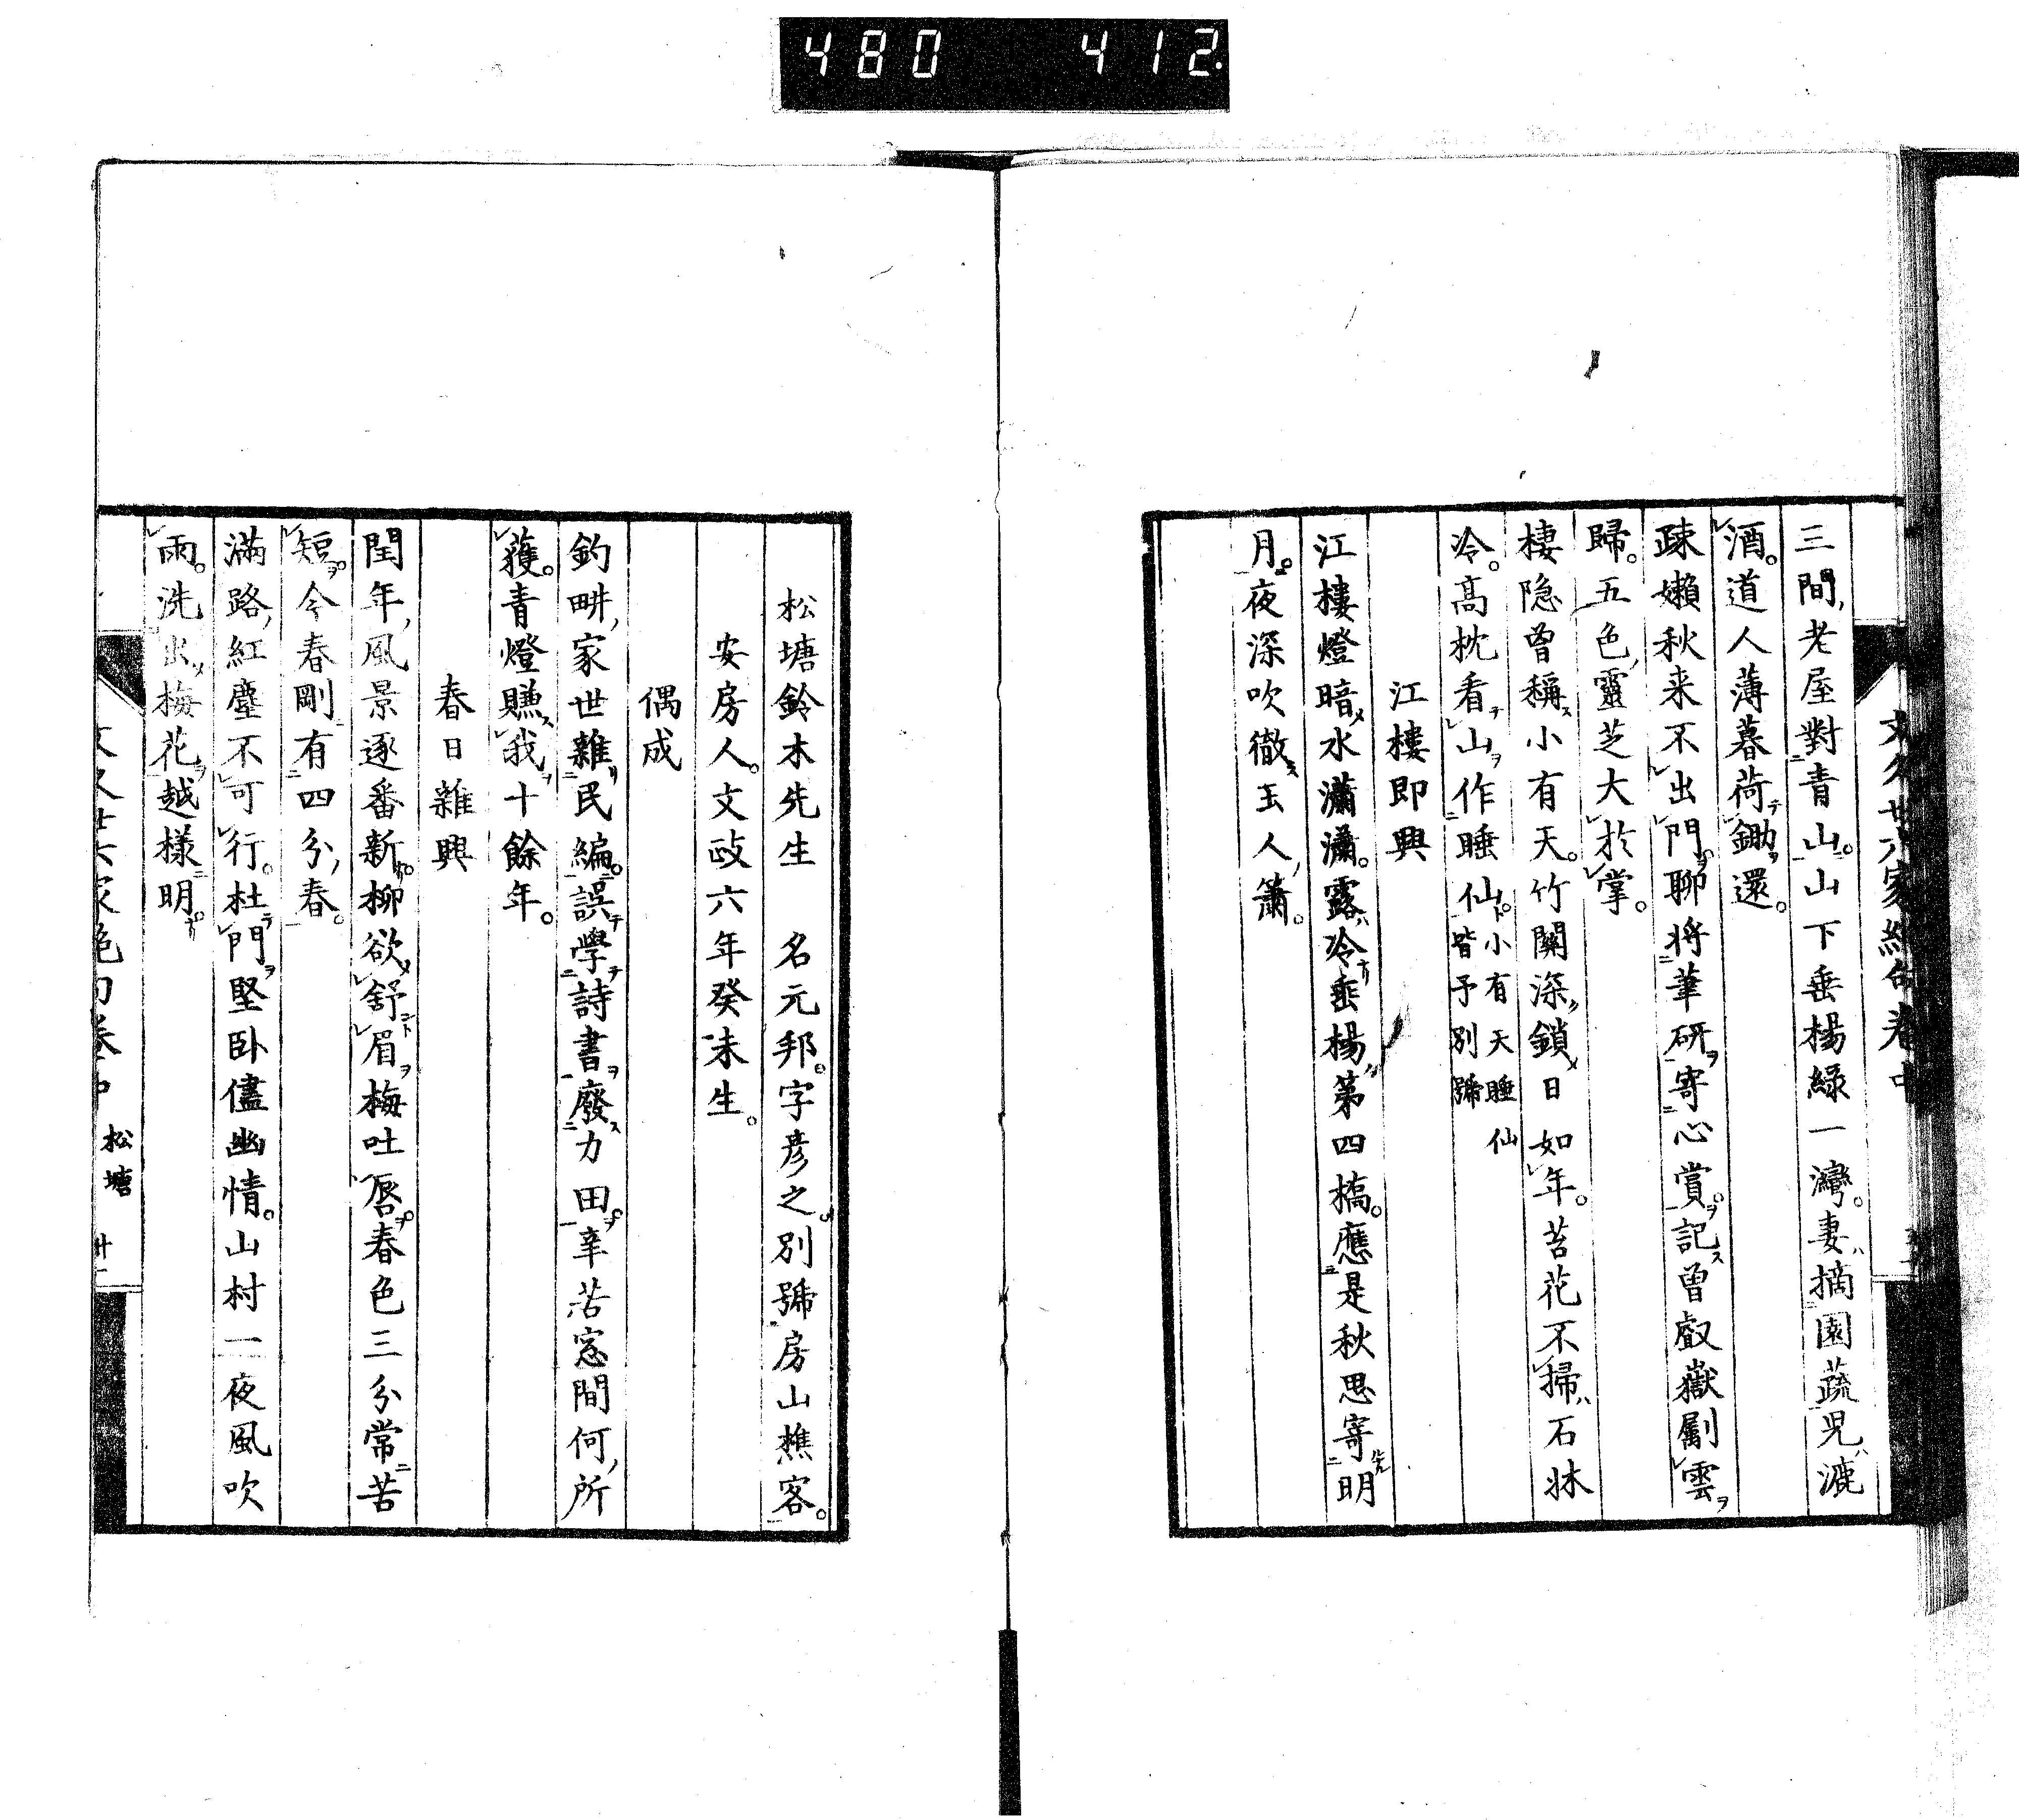 480 412.
三間老屋對青山。山下垂楊緑一灣。妻摘園蔬兒漉
酒。道人薄暮荷鋤還。
疎嬾秋来不出門。聊将筆研寄心賞。記曾叡嶽劚雲
歸。五色靈芝大於掌。
棲隐曾稱小有天。竹關深鎖日如年。苔花不掃石牀
冷。高枕看山作睡仙。小有天睡仙
皆予別號
江樓即興
江樓燈暗水瀟瀟。露冷垂楊第四橋。應是秋思寄明
月。夜深吹徹玉人簫。
松塘鈴木先生 名元邦。字彦之。別號房山樵客。
安房人。文政六年癸未生。
偶成
釣畊家世雜民編。誤學詩書廢力田。辛苦窓間何所
獲。青燈賺我十餘年。
春日雜興
閏年風景逐番新。柳欲舒眉梅吐唇。春色三分常苦
短。今春剛有四分春。
滿路紅塵不可行。杜門堅卧儘幽情。山村一夜風吹
雨。洗出梅花越様明。
松塘